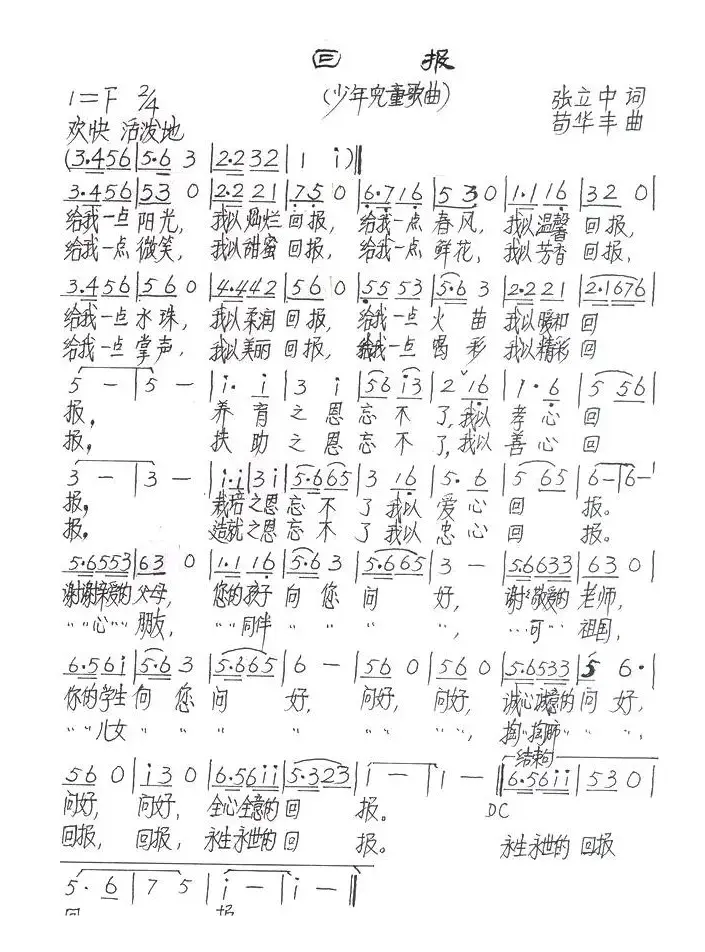 回 报
(少年児童歌曲)
1=F 2/4
张立中 词
欢快 活泼地
苟华丰 曲
(3·456|5·6 3|2·232|1 i)‖
3·456|53 0|2·221|7·5 0|6·716|5 30|1·116|32 0|
给我一点 阳光, 我以灿烂 回报, 给我一点 春风, 我以温馨 回报,
给我一点 微笑, 我以甜蜜 回报, 给我一点 鲜花, 我以芳香 回报,
3·456|56 0|4·442|56 0|5553|5·6 3|2·221|2·1676|
给我一点 水珠, 我以柔润 回报, 给我一点 火苗 我以暖和 回
给我一点 掌声, 我以美丽 回报, 给我一点 喝彩 我以精彩 回
5 —|5 —|i· i|3 i|56 i3|2 ˇ16|1·6|5 56|
报, 养育之恩忘不了,我以孝心回
报, 扶助之恩忘不了,我以善心回
3 —|3 —|i·i|3i|5·665|3 16|5·6|5 65|6—|6—|
报, 栽培之恩忘不了我以爱心回报。
报, 造就之恩忘不了我以忠心回报。
5·6553|63 0|1·116|5·6 3|5·665|3 —|5·6633|630|
谢谢亲爱的父母, 您的孩子向您问好, 谢谢敬爱的老师,
""心""朋友, ""同伴" " " ", "··可··祖国,
6·56i|5·6 3|5·665|6 —|56 0|56 0|5·6533|5 6·|
你的学生向您问好, 问好, 问好, 诚心诚意的问好,
""儿女" " " " "" "", 掏心掏肺"" "",
结束句
56 0|i30|6·56ii|5·323|i —|i —‖6·56ii|530|
问好, 问好, 全心全意的回报。 DC
回报, 回报, 永生永世的回报。 永生永世的 回报
5·6|7 5|i —|i —‖
回 报